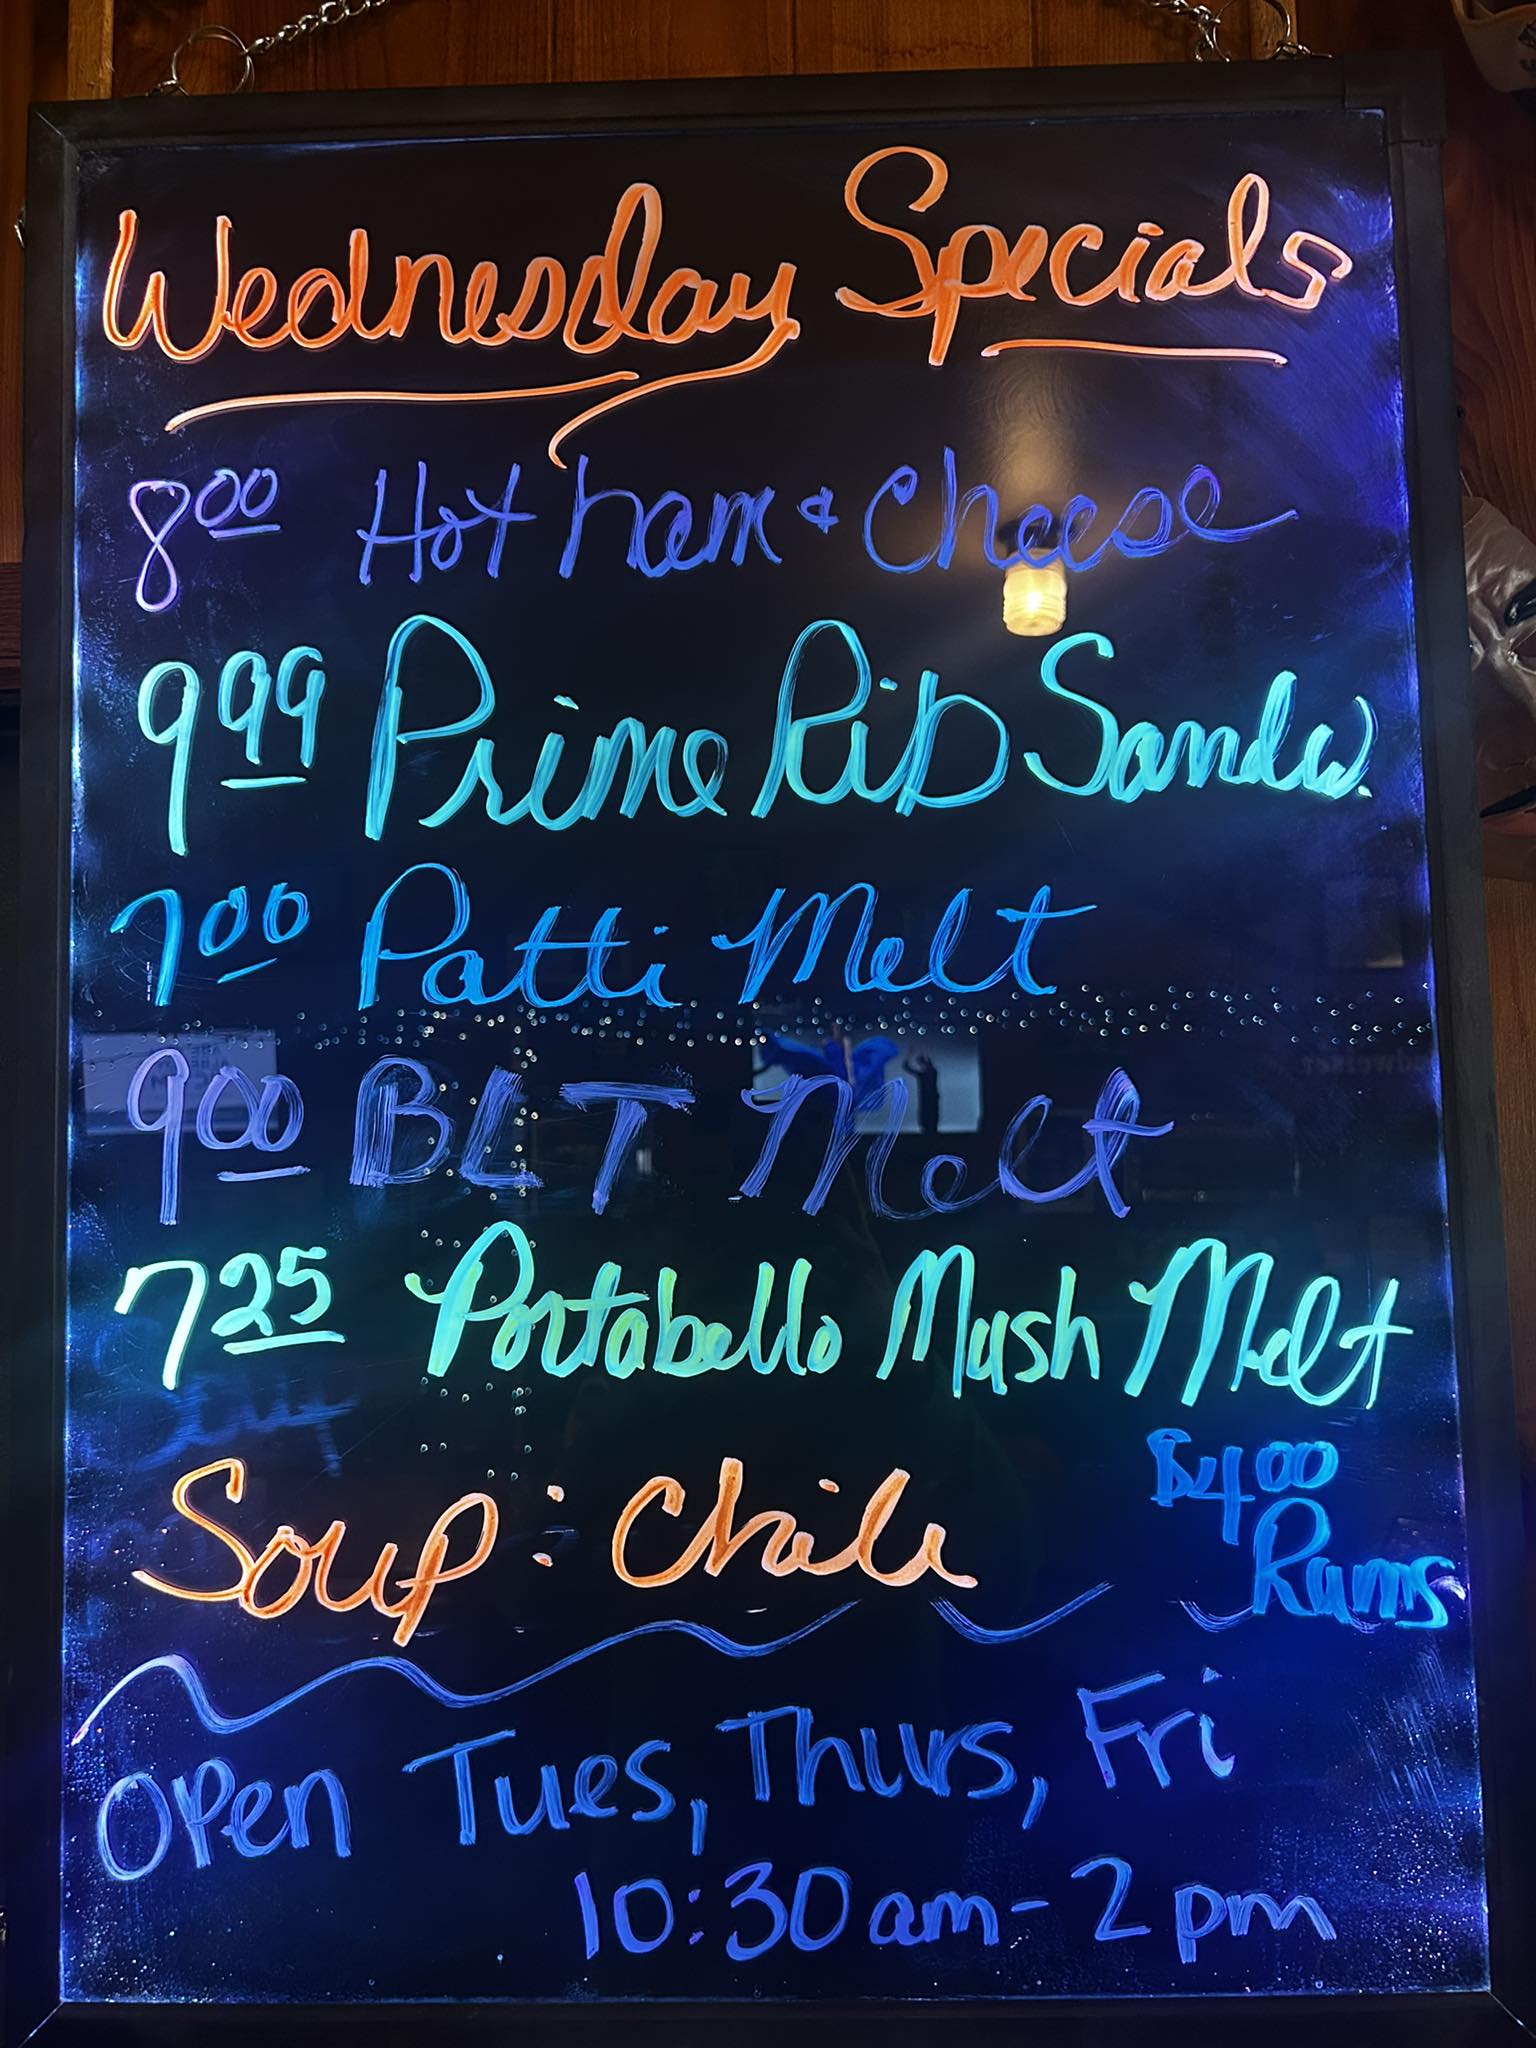 Wednesday Specials
8.00 Hot ham & Cheese
9.99 Prime Rib Sandw.
7.00 Patti Melt
9.00 BLT Melt
7.25 Portabello Mush Melt
Soup: Chili
$4.00
Rums
Open Tues, Thurs, Fri
10:30 am - 2 pm